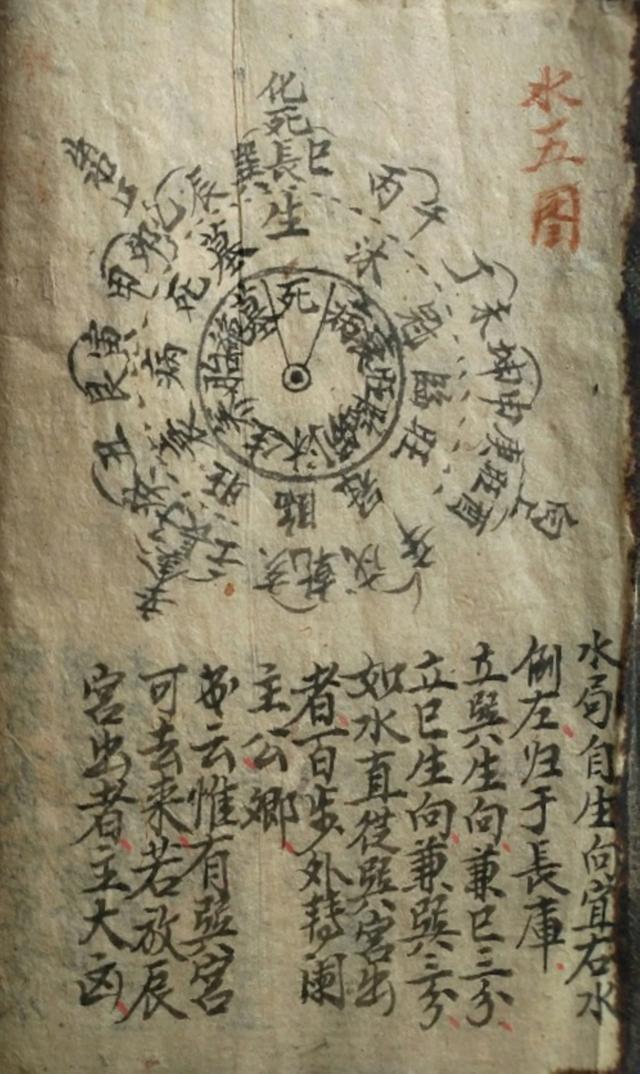 水五图
化死
巽長巳
生
丙午
丁未
坤申
庚旺酉
辛戌
乾亥
壬子
丑
艮寅
甲卯
乙辰
沐
冠
臨
旺
衰
病
死
墓
死
病
衰
旺
臨
冠
沐
生
养
胎
墓
水局自生向宜右水
倒左归于長庫
立巽生向兼巳三分
立巳生向兼巽三分
如水直從巽宮出
者百步外轉闌
主公卿
书云惟有巽宮
可去来若放辰
宮出者主大凶